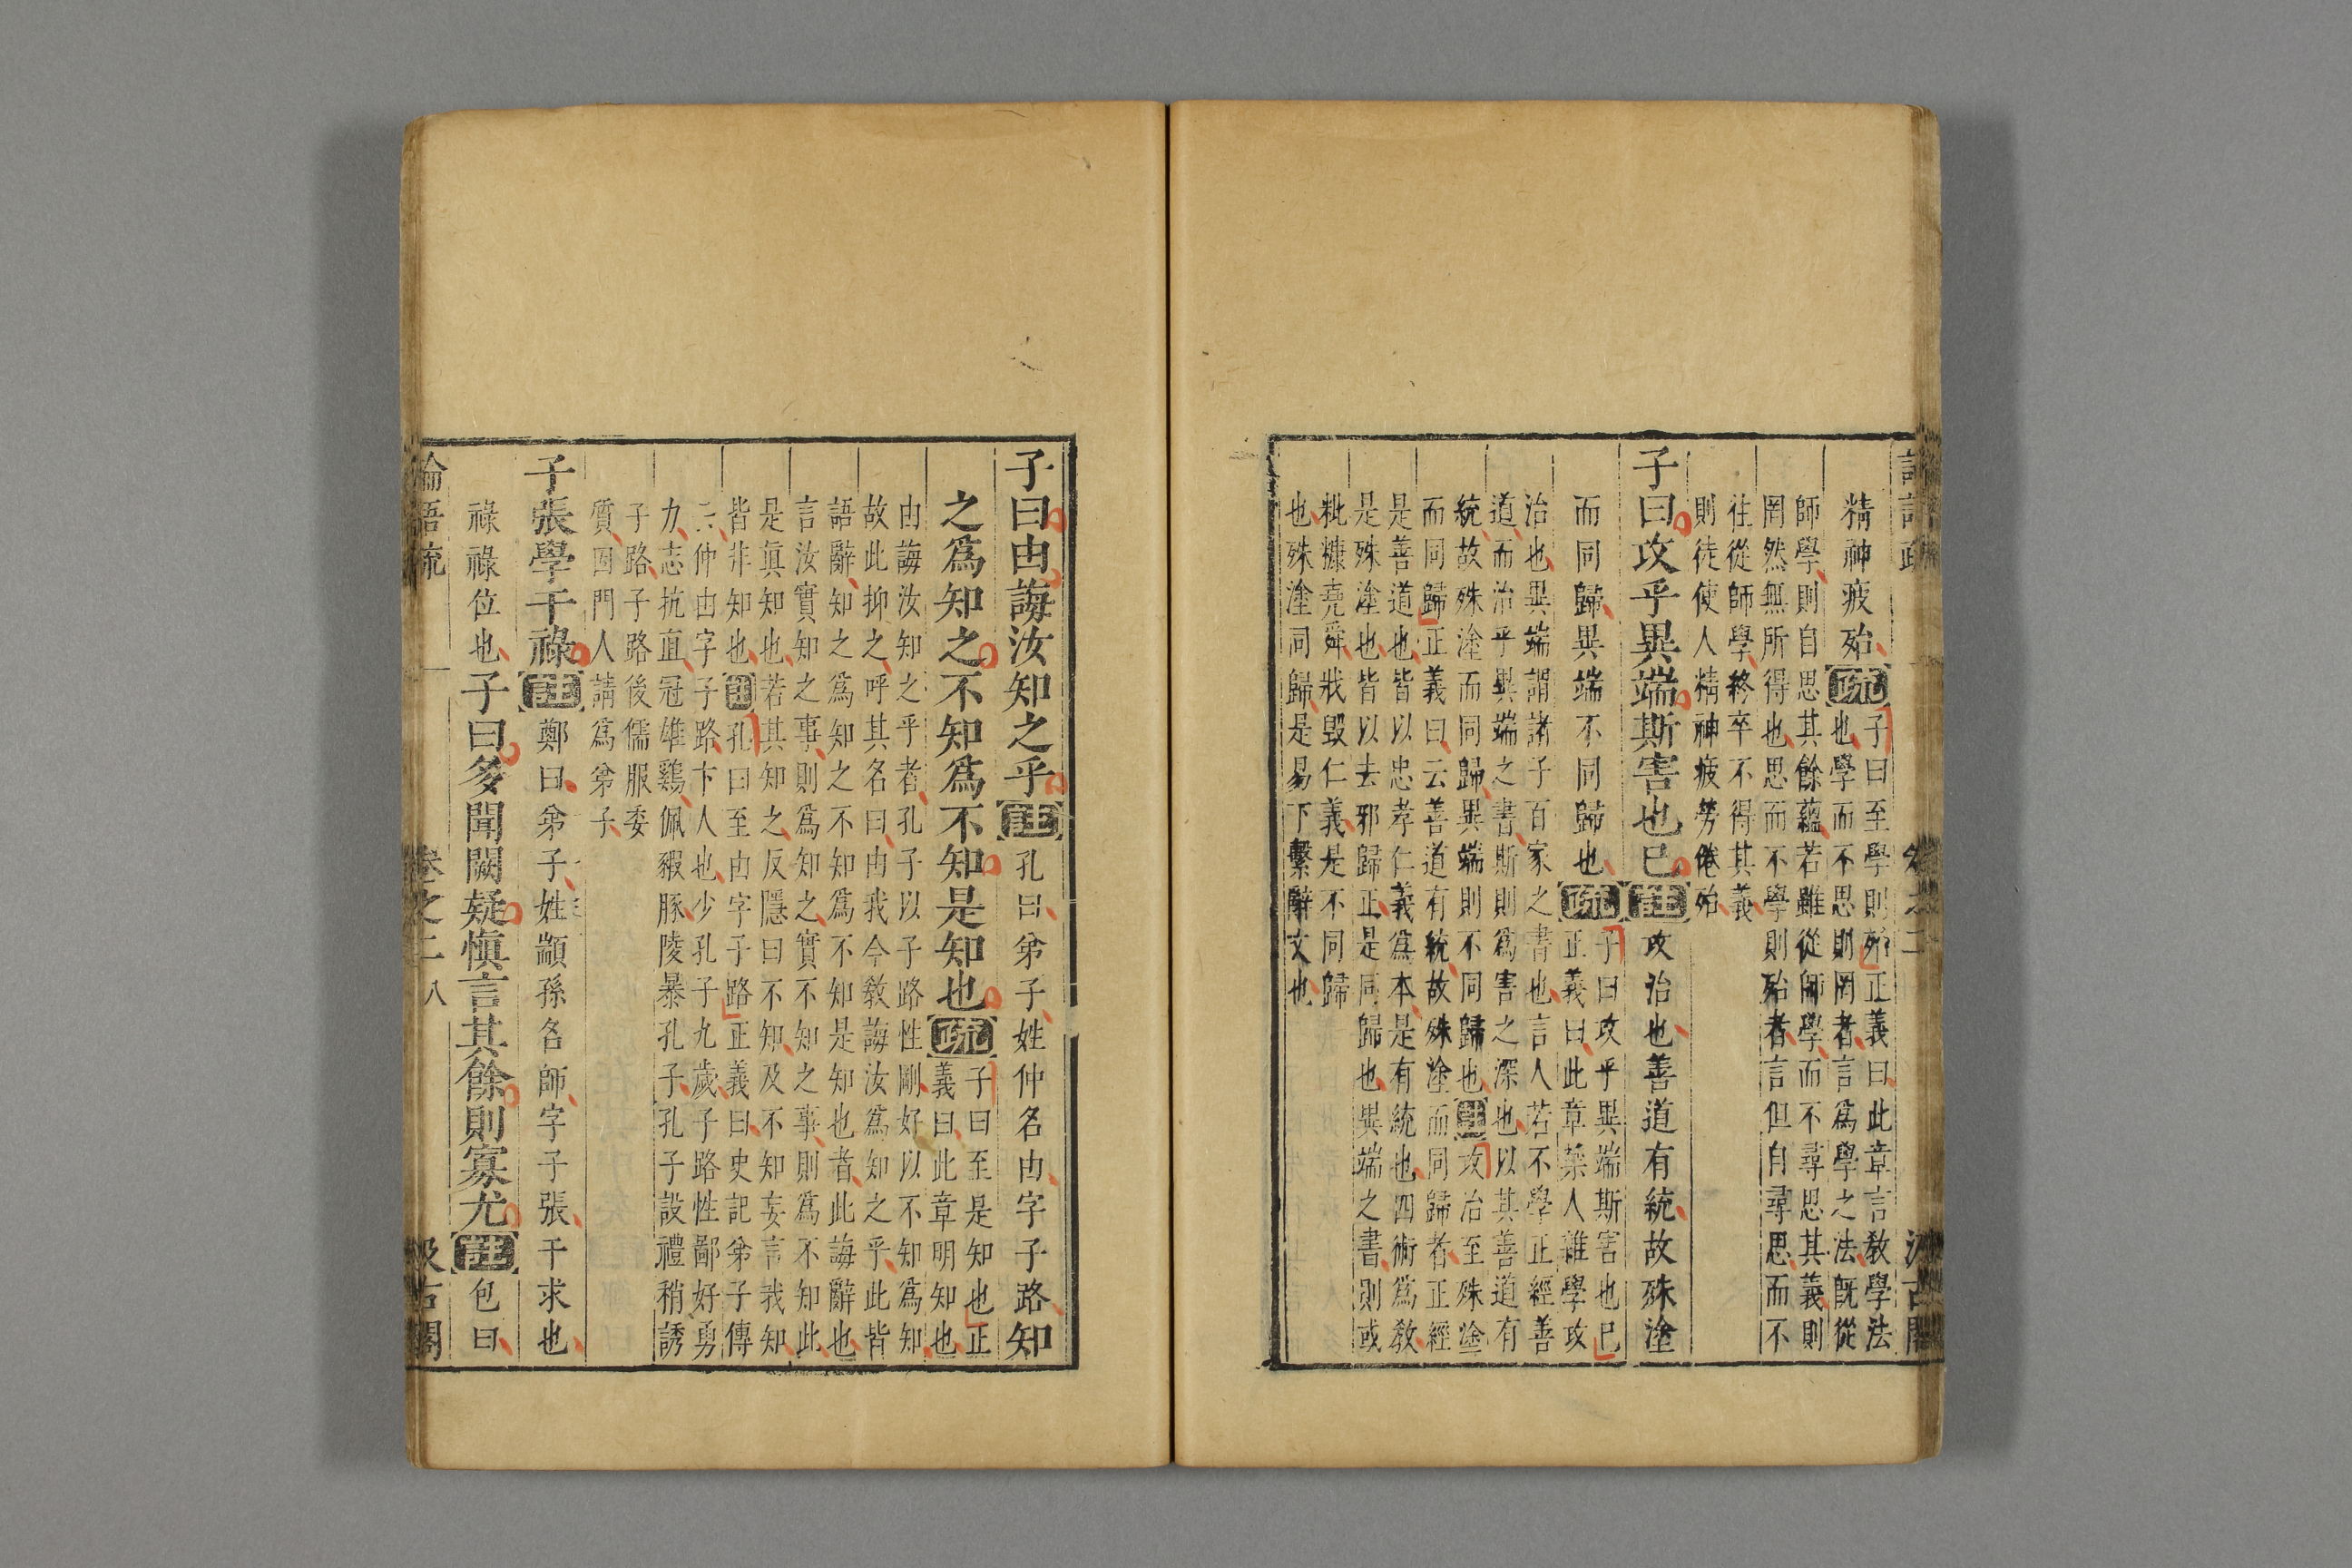 精神疲殆疏子曰至學則殆正義曰此章言教學法
也學而不思則罔者言爲學之法旣從
師學則自思其餘蘊若雖從師學而不尋思其義則
罔然無所得也思而不學則殆者言但自尋思而不
往從師學終卒不得其義
則徒使人精神疲勞倦殆
子曰攻乎異端斯害也已註攻治也善道有統故殊塗
而同歸異端不同歸也疏子曰攻乎異端斯害也已
正義曰此章禁人雜學攻
治也異端謂諸子百家之書也言人若不學正經善
道而治乎異端之書斯則爲害之深也以其善道有
統故殊塗而同歸異端則不同歸也註攻治至殊塗
而同歸正義曰云善道有統故殊塗而同歸者正經
是善道也皆以忠孝仁義爲本是有統也四術爲教
是殊塗也皆以去邪歸正是同歸也異端之書則或
粃糠堯舜戕毀仁義是不同歸
也殊塗同歸是易下繫辭文也
子曰由誨汝知之乎註孔曰弟子姓仲名由字子路知
之爲知之不知爲不知是知也疏子曰至是知也正
義曰此章明知也
由誨汝知之乎者孔子以子路性剛好以不知爲知
故此抑之呼其名曰由我今教誨汝爲知之乎此皆
語辭知之爲知之不知爲不知是知也者此誨辭也
言汝實知之事則爲知之實不知之事則爲不知此
是眞知也若其知之反隱曰不知及不知妄言我知
皆非知也註孔曰至由字子路正義曰史記弟子傳
云仲由字子路卞人也少孔子九歲子路性鄙好勇
力志抗直冠雄鷄佩豭豚陵暴孔子孔子設禮稍誘
子路子路後儒服委
質因門人請爲弟子
子張學干祿註鄭曰弟子姓顓孫名師字子張干求也
祿祿位也子曰多聞闕疑愼言其餘則寡尤註包曰
論語疏 卷之二 八 汲古閣